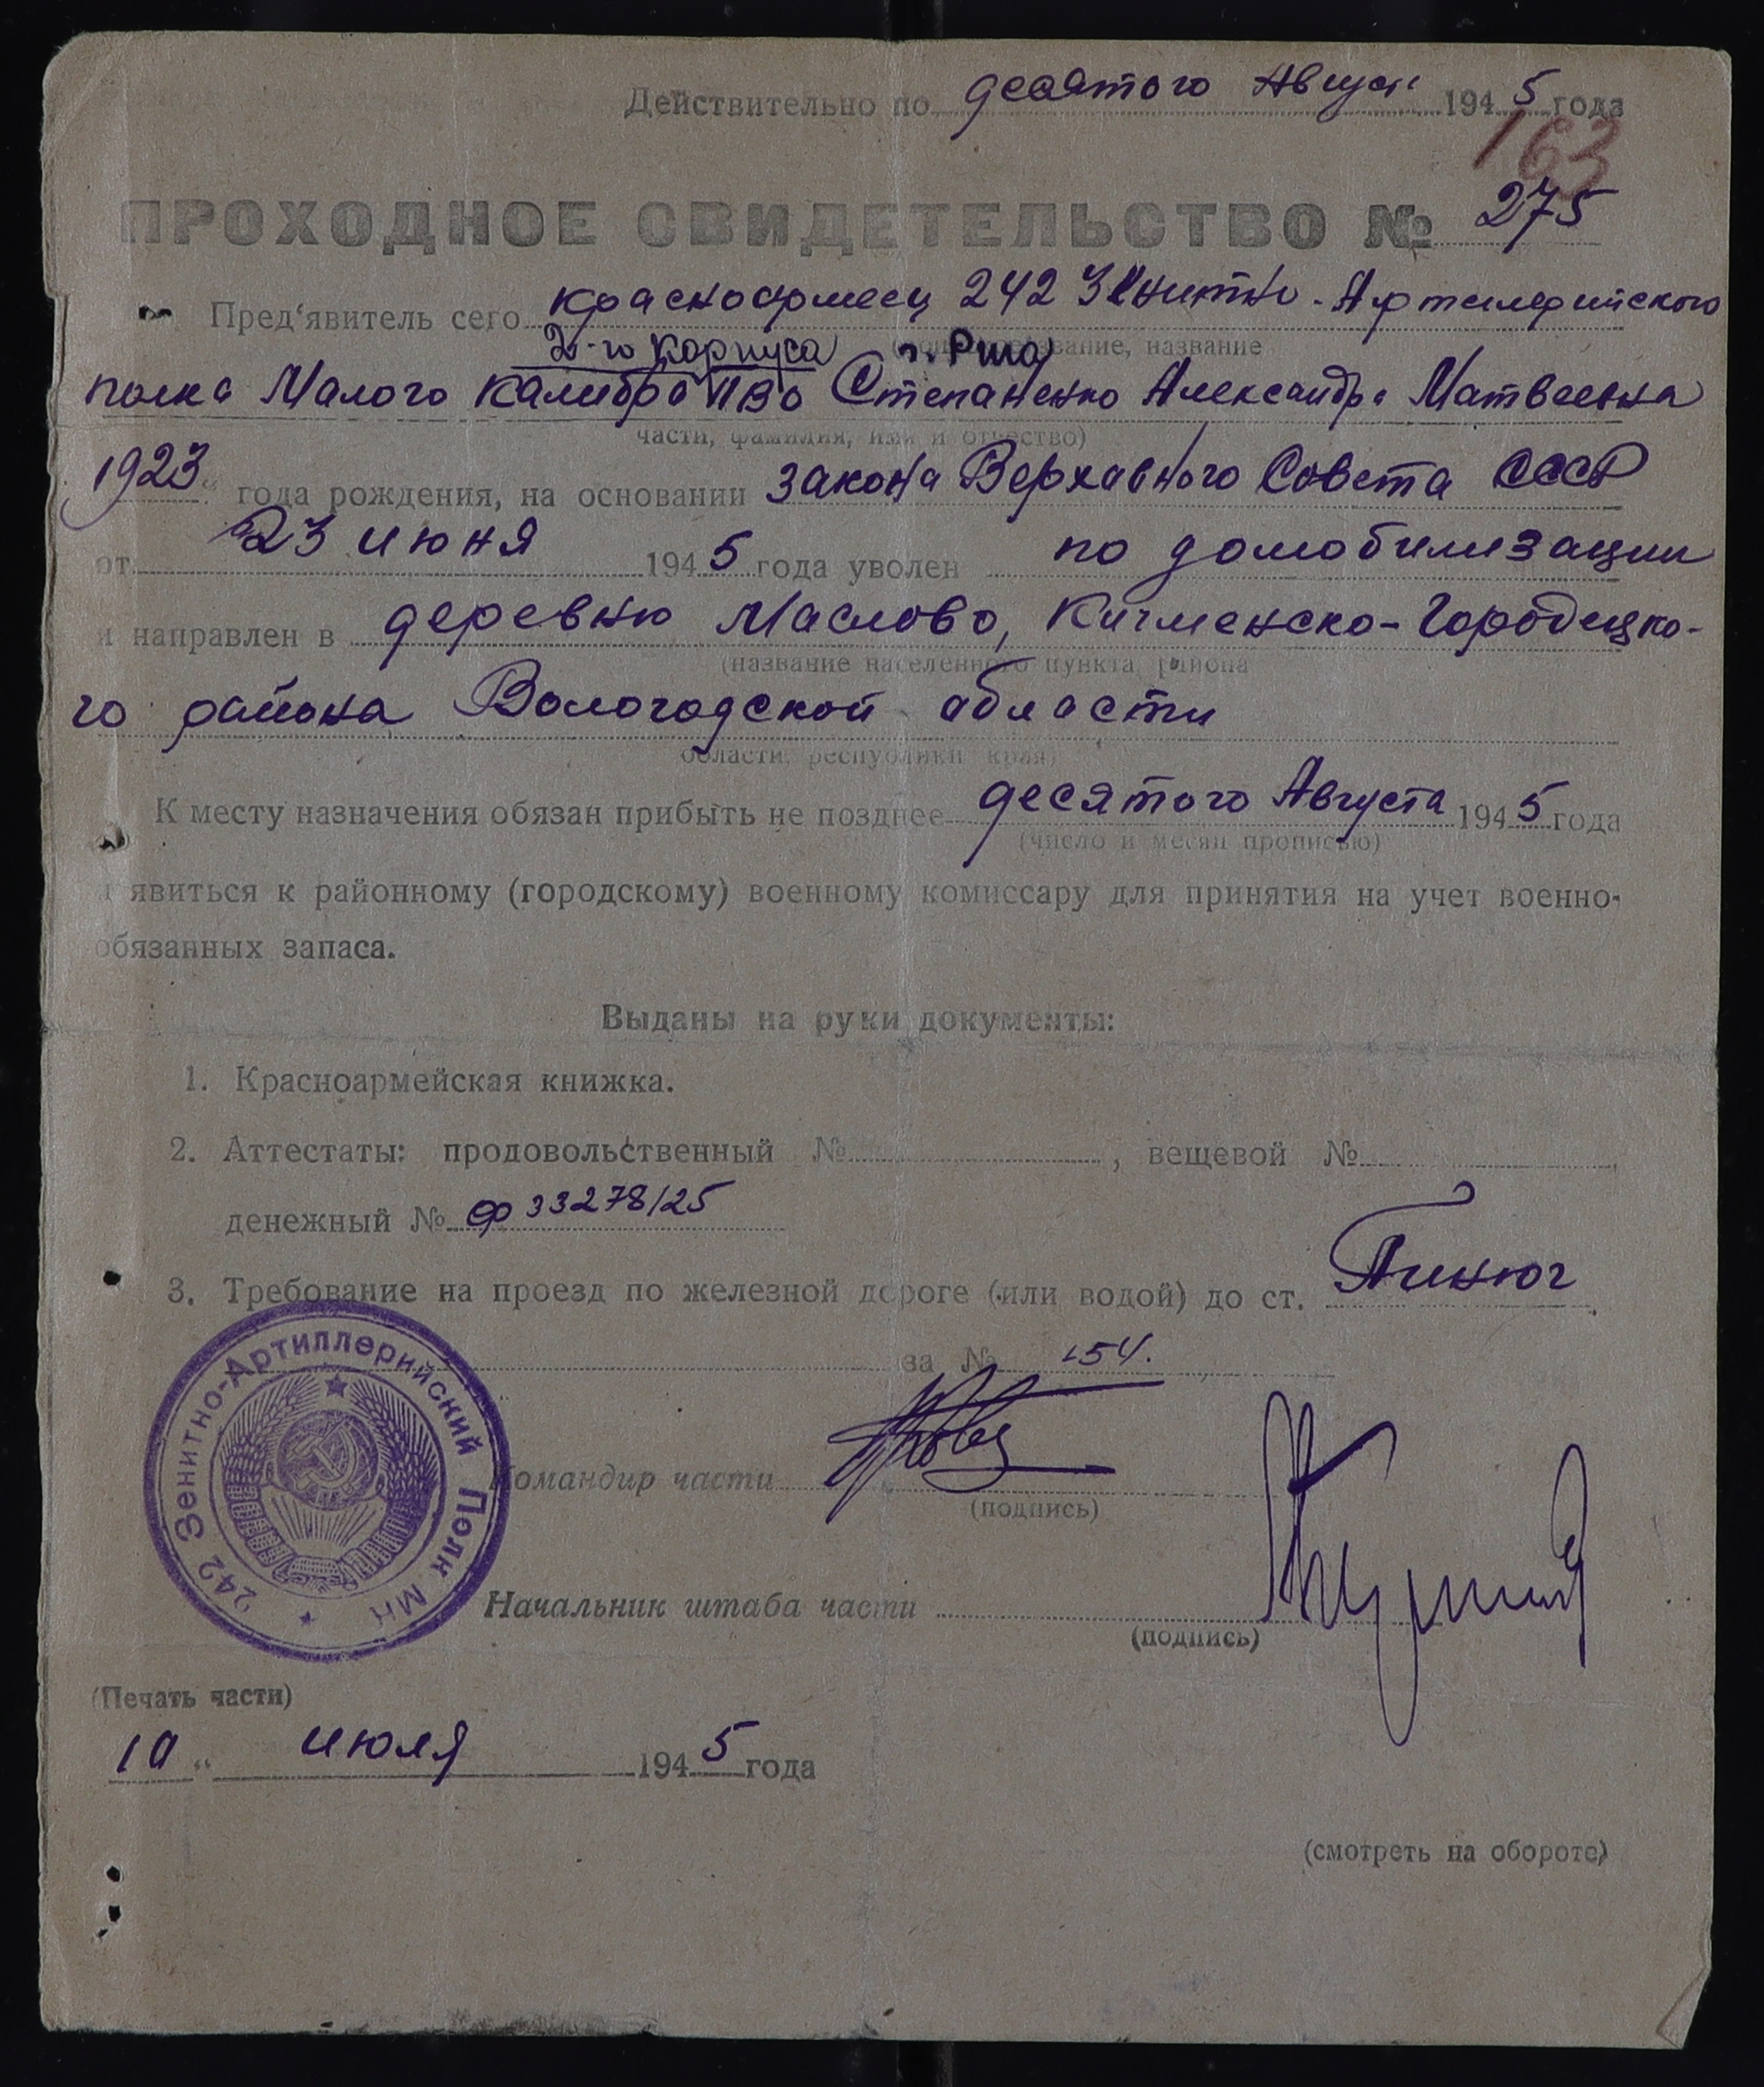 Действительно по десятого Август 1945 года
163
ПРОХОДНОЕ СВИДЕТЕЛЬСТВО № 275
Пред'явитель сего красноармеец 242 Зенитно-Артилерийского
2-го корпуса г. Рига
звание, название
полка Малого Калибра ПВО Степаненко Александра Матвеевна
части, фамилия, имя и отчество)
1923 года рождения, на основании закона Верхавного Совета СССР
от 23 июня 1945 года уволен по домобилизации
и направлен в деревню Маслово, Кичменско-Городецко-
(название населенного пункта, района
го района Вологодской области
области, республики края)
К месту назначения обязан прибыть не позднее десятого Августа 1945 года
(число и месяц прописью)
и явиться к районному (городскому) военному комиссару для принятия на учет военно-
обязанных запаса.
Выданы на руки документы:
1. Красноармейская книжка.
2. Аттестаты: продовольственный № , вещевой №
денежный № ф 33278/25
3. Требование на проезд по железной дороге (или водой) до ст. Пинюг
за № 154.
Командир части
(подпись)
Начальник штаба части
(подпись)
242 Зенитно-Артиллерийский Полк МК
(Печать части)
10 " июля 1945 года
(смотреть на обороте)